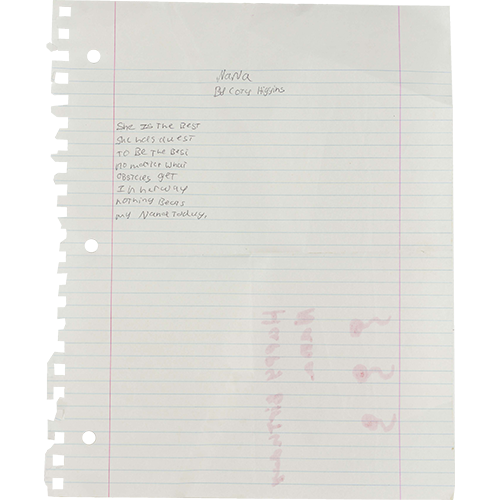 NaNa
By Cozy Higgins
She Is The Best
She has quest
TO Be The Best
no matter what
obstcles get
In her way
nothing Beats
my Nana today.
Nana
Happy Birthday